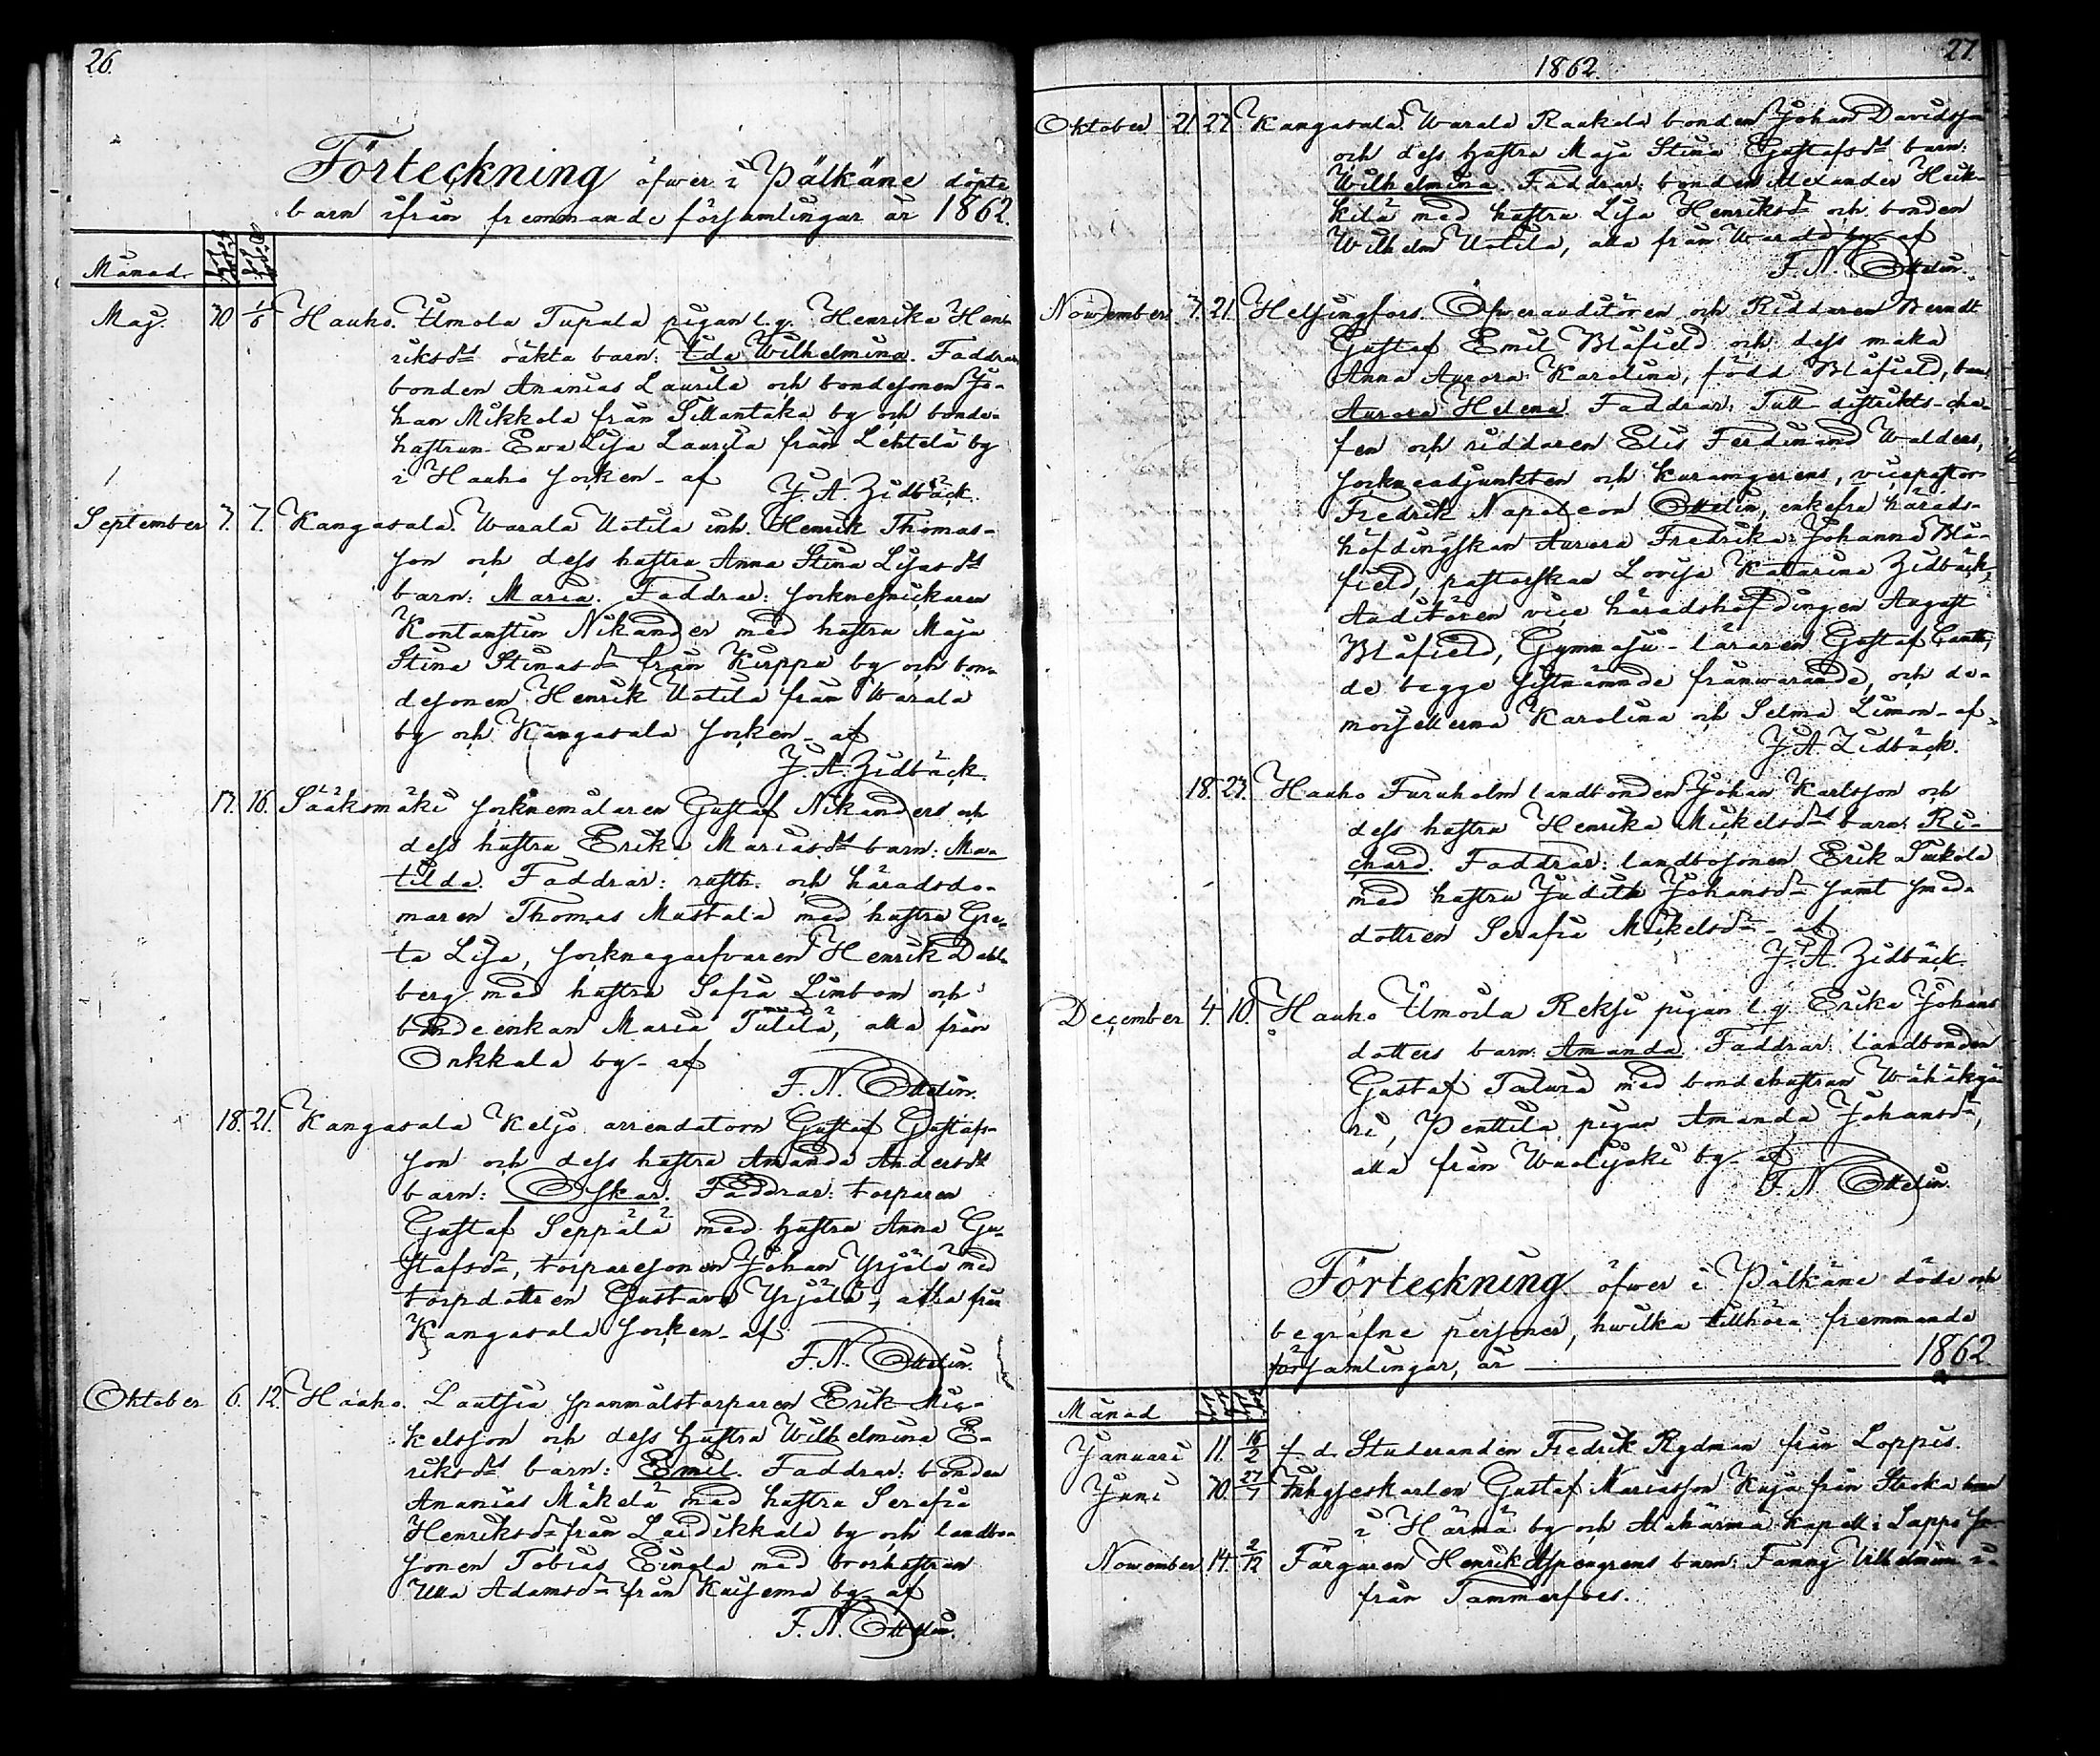 26.
Förteckning öfwer i Pälkäne döpte
barn ifrån fremmande församlingar år 1862.
Månad.
Maj. 30 1/6 Hauho. Ilmola Tupala pigan l. q. Henrika Hen-
riksdrs oäkta barn: Ida Wilhelmina. Faddrar
bonden Ananias Laurila och bondesonen Jo-
han Mikkola från Sittantaka by och bonde-
hustrun Ewa Lisa Laurila från Lehtelä by
i Hauho socken - af
J. A. Zidbäck.
September 7. 7. Kangasala. Warala Uotila inh. Henrik Thomas-
son och dess hustru Anna Stina Lisasdrs
barn: Maria. Faddrar: socknesnickaren
Kontanstin Nikander med hustru Maja
Stina Stinasdr från Kirppu by och bon-
desonen Henrik Uotila från Warala
by och Kangasala socken - af
J. A. Zidbäck.
17. 16. Sääksmäki socknemålaren Gustaf Nikanders och
dess hustru Erika Mariasdrs barn: Ma-
tilda. Faddrar: rusth. och häradsdo-
maren Thomas Mattala med hustru Gre-
ta Lisa, socknegarfvaren Henrik Dahl-
berg med hustru Sofia Limbom och
bondeenkan Maria Tulila, alla från
Onkkala by - af
F. N. Ottelin.
18. 21. Kangasala Keljo arrendatorn Gustaf Gustafs-
son och dess hustru Amanda Andersdrs
barn: Oskar. Faddrar: torparen
Gustaf Seppälä med hustru Anna Gu-
stafsdr, torparesonen Johan Yrjölä med
torpdottren Gustava Yrjölä, alla från
Kangasala socken - af
F. N. Ottelin.
Oktober 6. 12. Hauho. Lautsia spanmålstorparen Erik Mic-
kelsson och dess hustru Wilhelmina E-
riksdrs barn: Emil. Faddrar: bonden
Ananias Mäkelä med hustru Serafia
Henriksdr från Laidikkala by och landbo-
sonen Tobias Einola med
Ulla Adamsdr från Kaisema by af
F. N. Ottelin.
1862. 27.
Oktober 21 27. Kangasala. Warala Raakala bonden Johan Davidsson
och dess hustru Maja Stina Gustafsdrs barn:
Wilhelmina. Faddrar: bonden Alexander Heik-
kilä med hustru Lisa Henriksdr och bonden
Wilhelm Uotila, alla från Warala by af
F. N. Ottelin.
November 7. 21. Helsingfors. Öfwerauditören och Riddaren Berndt
Gustaf Emil Blåfield och dess maka
Anna Aurora Karolina, född Blåfield, barn
Aurora Helena. Faddrar: Tull-distrikts-che-
fen och riddaren Elis Ferdinand Walders,
sockneadjunkten och kuramgerens, vicepastor
Fredrik Napoleon Ottelin, enkefru härads-
höfdingskan Aurora Fredrika Johanna Blå-
field, pastorskan Lovisa Katarina Zidbäck,
Auditören vice häradshöfdingen August
Blåfield, Gymnasii-läraren Gustaf
de begge sistnämnde frånwarande, och de-
moisellerna Karolina och Selma Limon - af
J. A. Zidbäck.
18. 27. Hauho Furuholm landbonden Johan Karlsson och
dess hustru Henrika Mickelsdrs barn: Ri-
chard. Faddrar: landbosonen Erik Tukola
med hustru Judith Johansdr samt smed-
dottren Serafia Mickelsdr - af
J. A. Zidbäck.
December 4. 10. Hauho Ilmoila Reksi pigan l. q. Erika Johans
dotters barn: Amanda. Faddrar: landbonden
Gustaf Talwia med bondehustrun Wähäkyä-
ri, Penttilä pigan Amanda Johansdr,
alla från Waoljoki by - af
F. N. Ottelin.
Förteckning öfwer i Pälkäne döde och
begrafne personer, hwilka tillhöra fremmande
församlingar, år 1862.
Månad
Januari 11. 16/2 f. d. Studeranden Fredrik Rydman från Loppis.
Juni 30. 27/7 Inhyseskarlen Gustaf Mariasson Kuja från Stroka
i Härmä by och Alahärmä kapell i Lappo
November 14. 2/12 Färgaren Henrik Aspengrens barn: Fanny Wilhelmina
från Tammerfors.